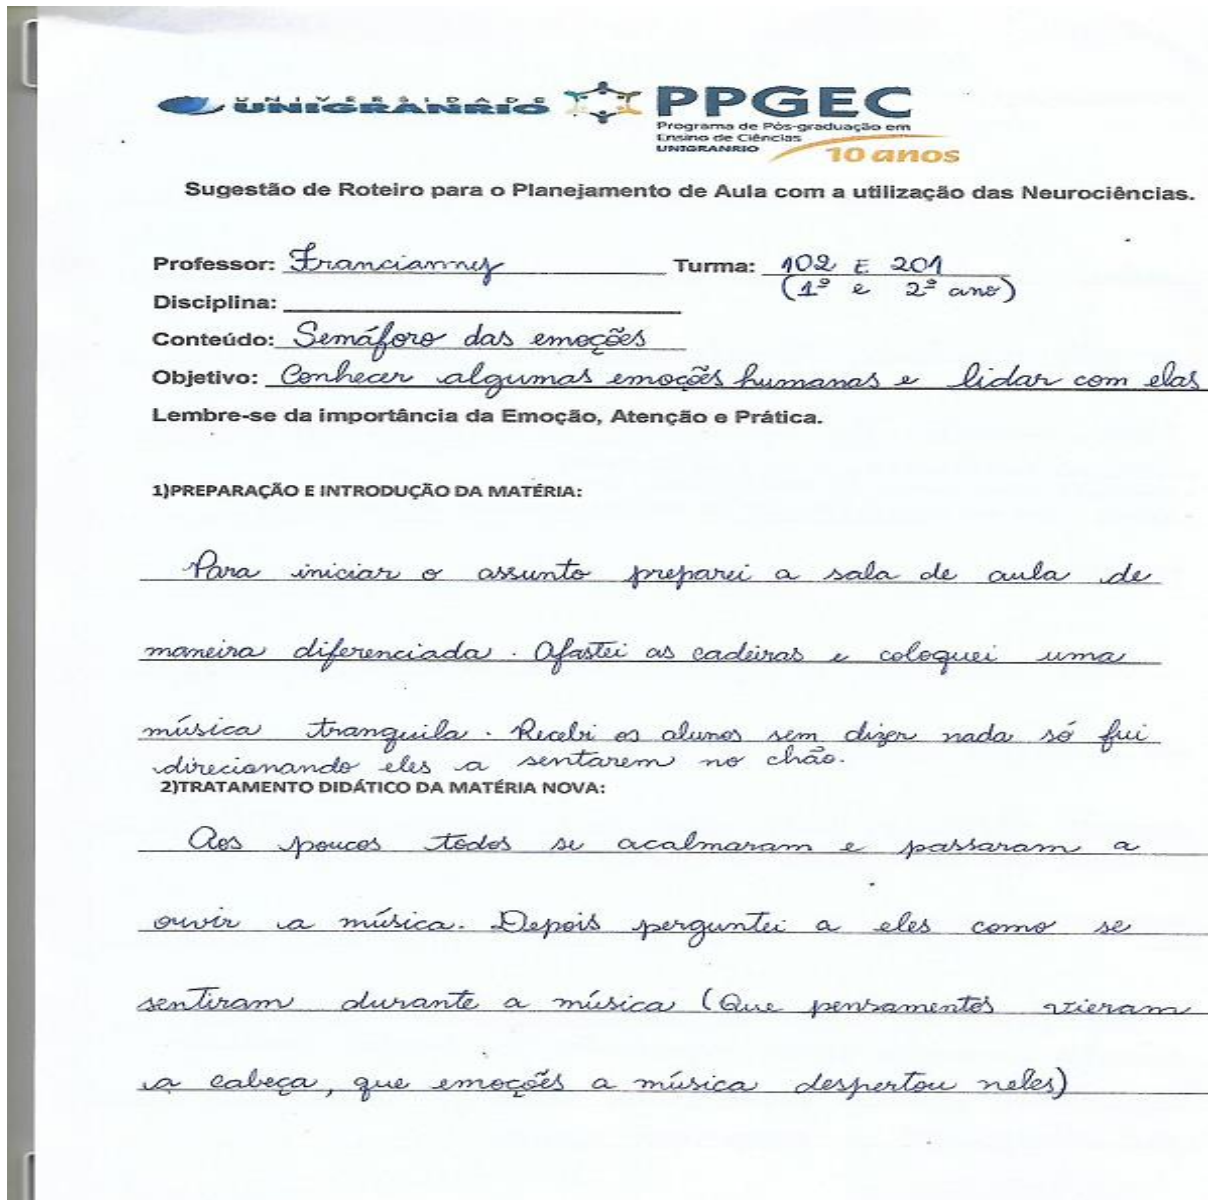 UNIVERSIDADE
UNIGRANRIO
PPGEC
Programa de Pós-graduação em
Ensino de Ciências
UNIGRANRIO
10 anos
Sugestão de Roteiro para o Planejamento de Aula com a utilização das Neurociências.
Professor: Francianny Turma: 102 E 201
(1º e 2º ano)
Disciplina:
Conteúdo: Semáforo das emoções
Objetivo: Conhecer algumas emoções humanas e lidar com elas
Lembre-se da importância da Emoção, Atenção e Prática.
1)PREPARAÇÃO E INTRODUÇÃO DA MATÉRIA:
Para iniciar o assunto preparei a sala de aula de
maneira diferenciada. Afastei as cadeiras e coloquei uma
música tranquila. Recebi os alunos sem dizer nada só fui
direcionando eles a sentarem no chão.
2)TRATAMENTO DIDÁTICO DA MATÉRIA NOVA:
Aos poucos todos se acalmaram e passaram a
ouvir a música. Depois perguntei a eles como se
sentiram durante a música (Que pensamentos vieram
a cabeça, que emoções a música despertou neles)